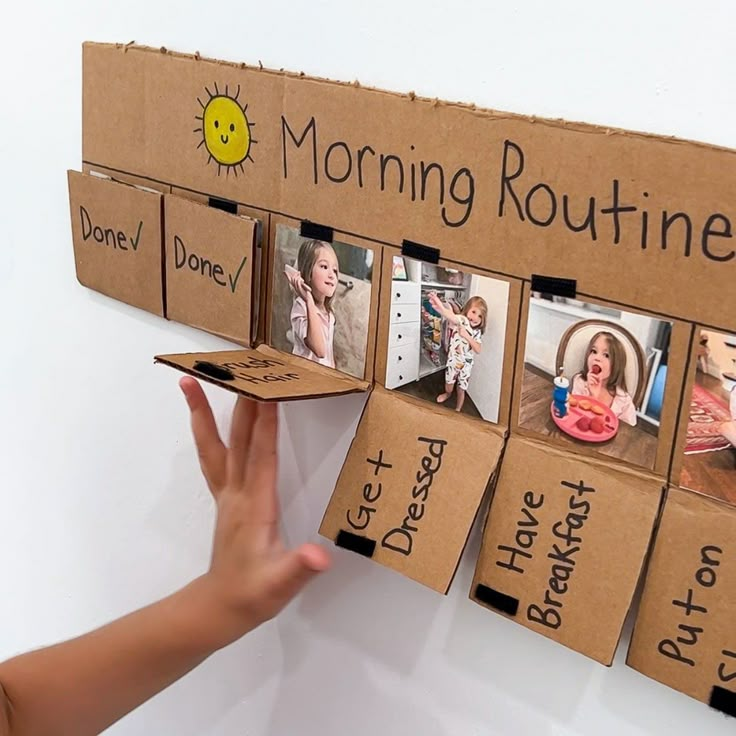 Morning Routine
Done✓
Done✓
Hair
Get
Dressed
Have
Breakfast
Put on